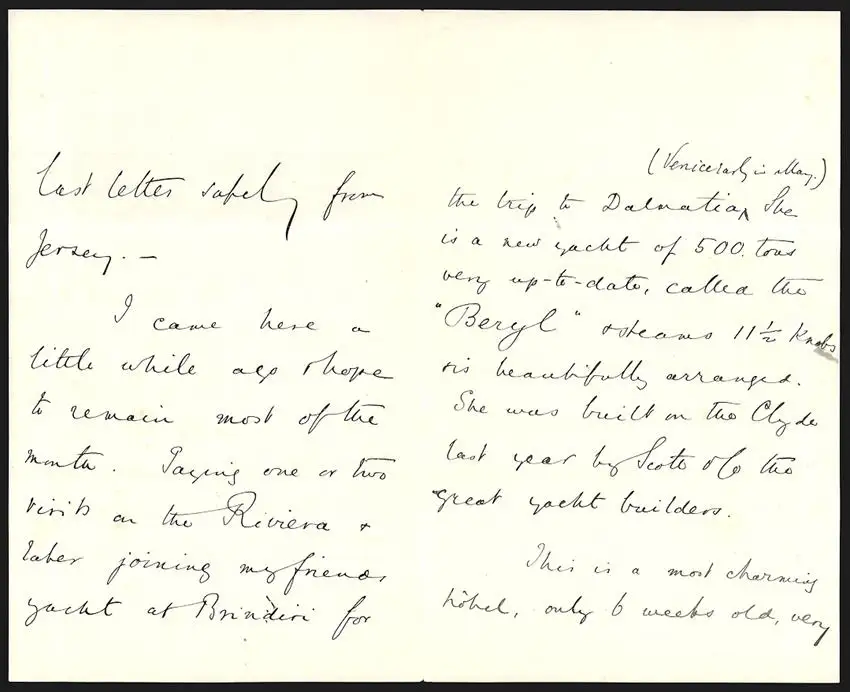 last letter safely from
Jersey. —
I came here a
little while ago & hope
to remain most of the
month. Paying one or two
visits on the Riviera &
later joining my friends
yacht at Brindisi for
(Venice early in May.)
the trip to Dalmatia, She
is a new yacht of 500. tons
very up-to-date, called the
"Beryl" & steams 11 ½ Knots
& is beautifully arranged.
She was built on the Clyde
last year by Scott & Co the
great yacht builders.
This is a most charming
hôtel, only 6 weeks old, very